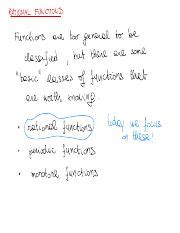 RATIONAL FUNCTIONS
Functions are too general to be
classified, but there are some
"basic" classes of functions that
are worth knowing.
• rational functions
today we focus
on these!
• periodic functions
• monotone functions